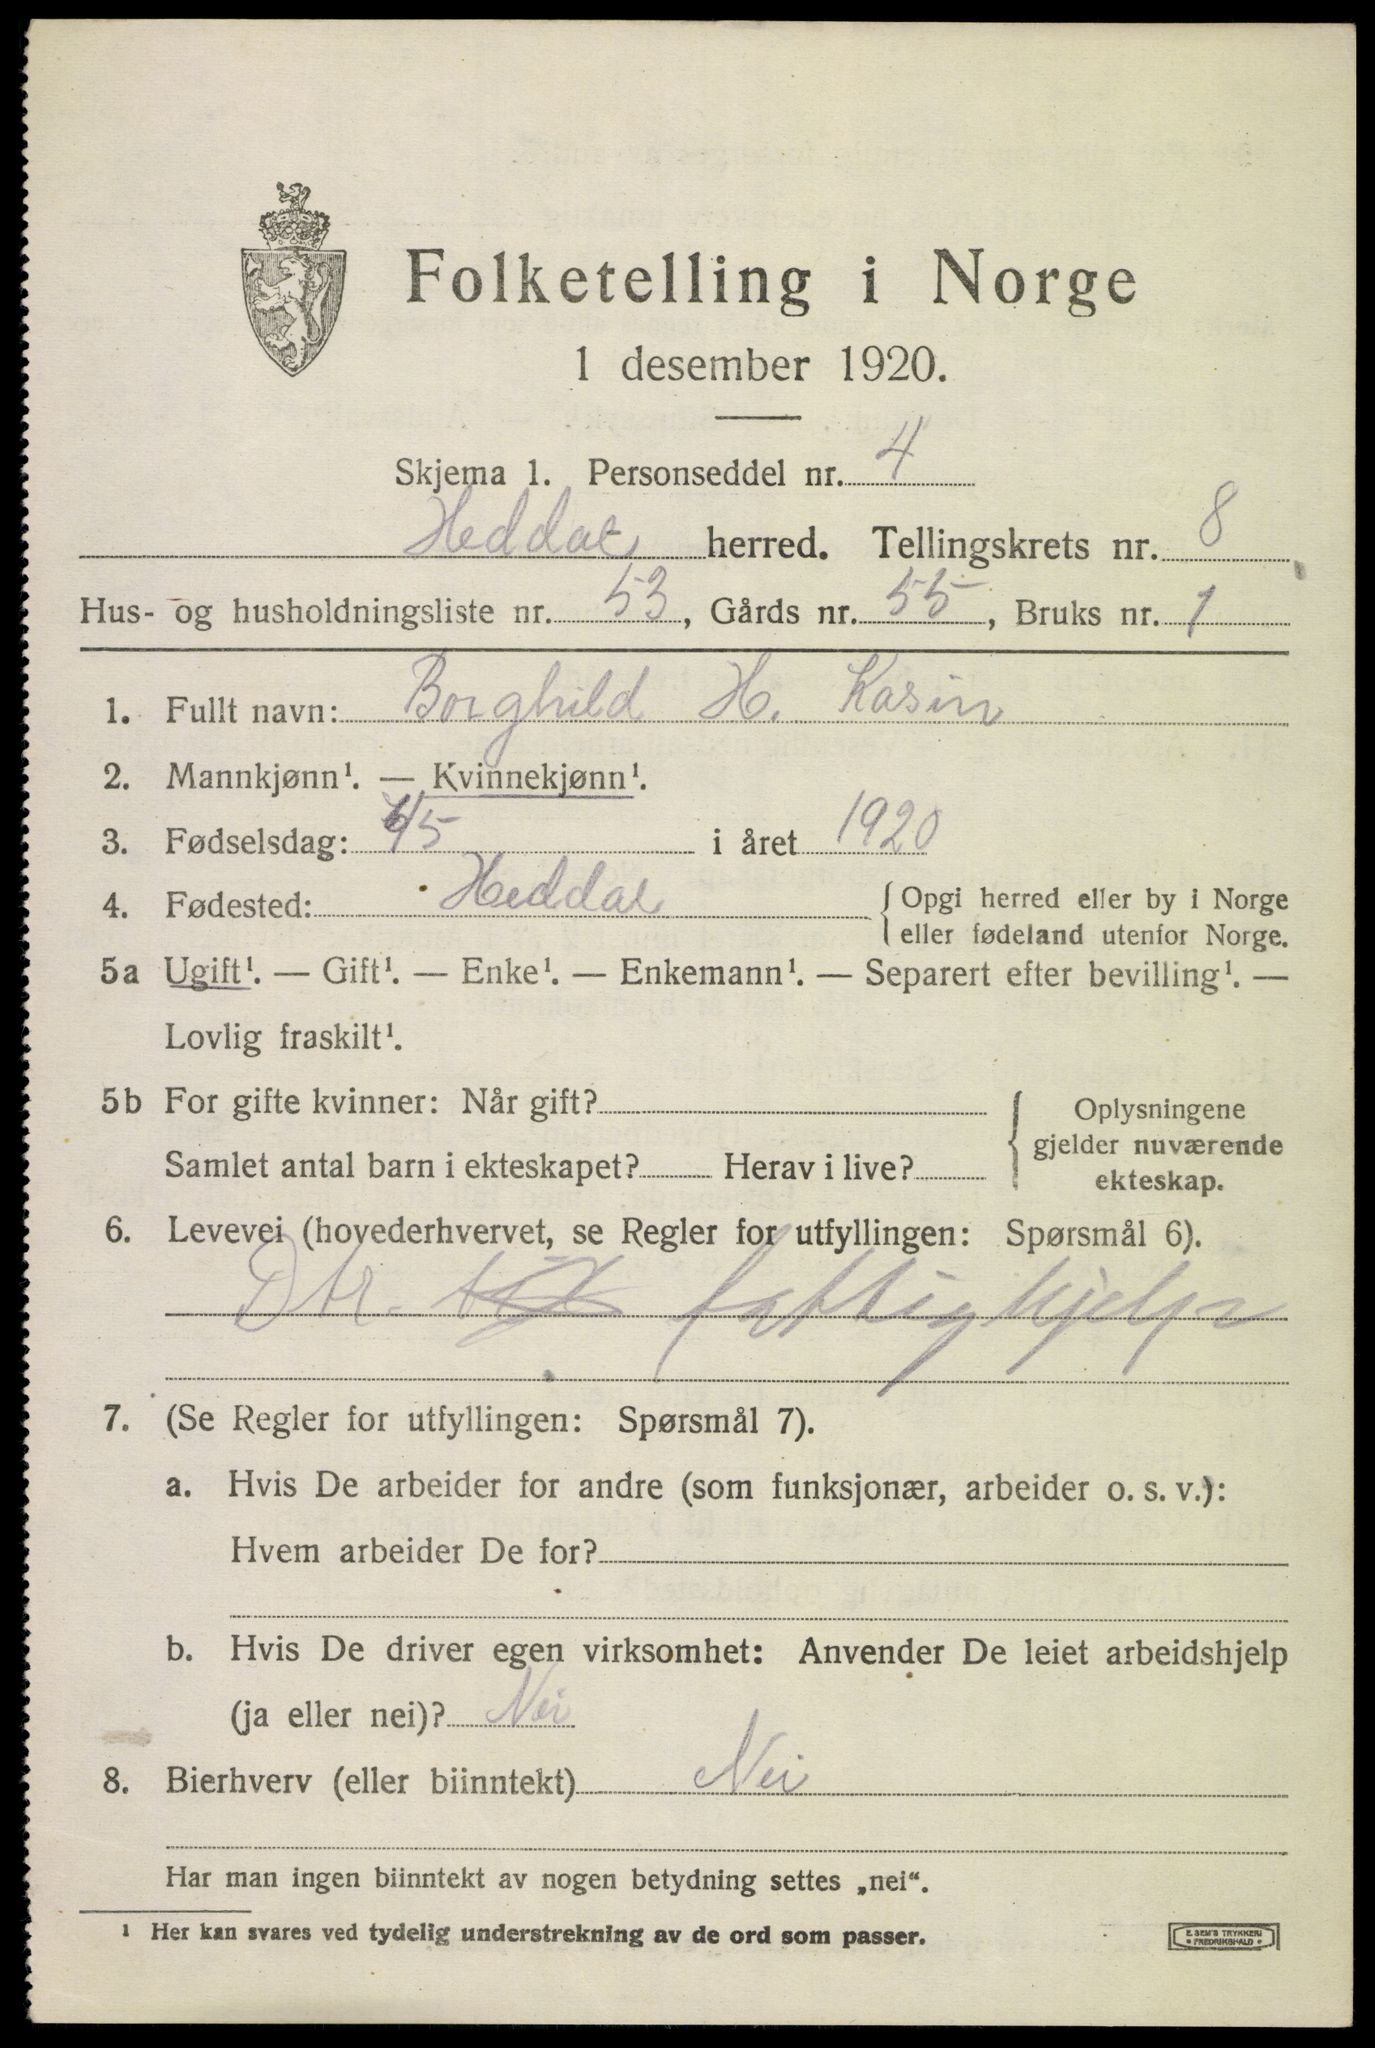 Folketelling i Norge
1 desember 1920.
Skjema 1. Personseddel nr. 4
Heddal herred. Tellingskrets nr. 8
Hus- og husholdningsliste nr. 53, Gårds nr. 55, Bruks nr. 1
1. Fullt navn: Borghild H. Kasin
2. Mannkjønn¹. — Kvinnekjønn¹.
3. Fødselsdag: /5 i året 1920
4. Fødested: Heddal {Opgi herred eller by i Norge
eller fødeland utenfor Norge.
5a Ugift¹. — Gift¹. — Enke¹. — Enkemann¹. — Separert efter bevilling¹. —
Lovlig fraskilt¹.
5b For gifte kvinner: Når gift?
Samlet antal barn i ekteskapet? Herav i live?
{Oplysningene
gjelder nuværende
ekteskap.
6. Levevei (hovederhvervet, se Regler for utfyllingen: Spørsmål 6).
Dtr. fattighjelp
7. (Se Regler for utfyllingen: Spørsmål 7).
a. Hvis De arbeider for andre (som funksjonær, arbeider o. s. v.):
Hvem arbeider De for?
b. Hvis De driver egen virksomhet: Anvender De leiet arbeidshjelp
(ja eller nei)? Nei
8. Bierhverv (eller biinntekt) Nei
Har man ingen biinntekt av nogen betydning settes „nei“.
¹ Her kan svares ved tydelig understrekning av de ord som passer.
E. SEM'S TRYKKERI
FREDRIKSHALD